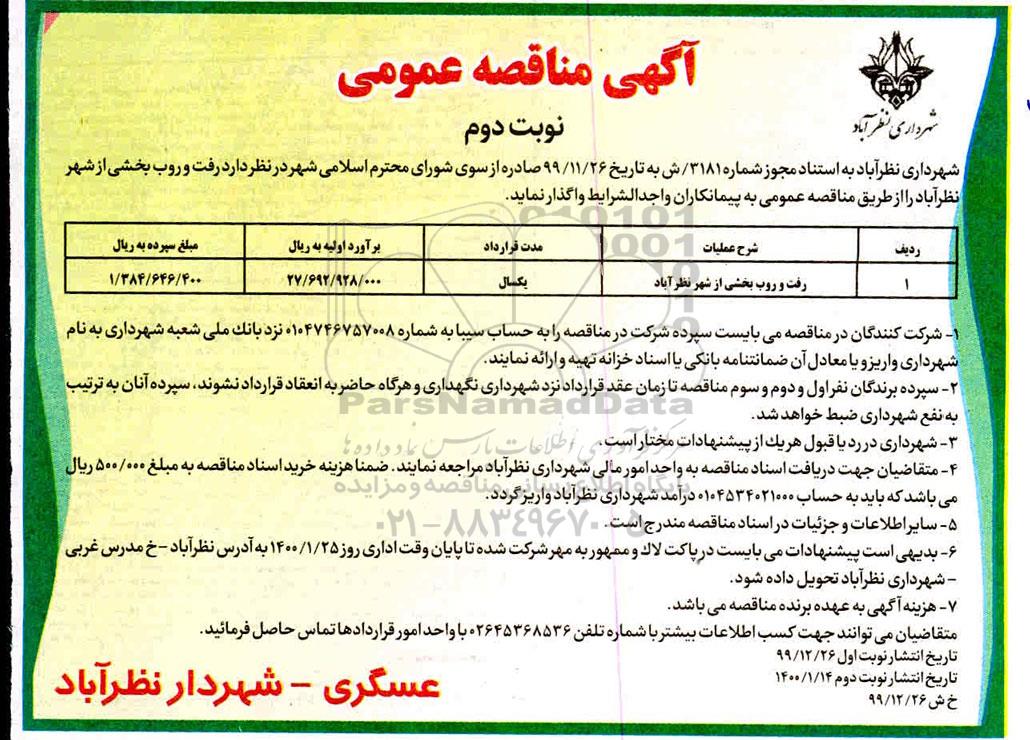 آگهی مناقصه عمومی
شهرداری نظرآباد
نوبت دوم
شهرداری نظرآباد به استناد مجوز شماره ۳۱۸۱/ش به تاریخ ۹۹/۱۱/۲۶ صادره از سوی شورای محترم اسلامی شهر در نظر دارد رفت و روب بخشی از شهر
نظرآباد را از طریق مناقصه عمومی به پیمانکاران واجدالشرایط واگذار نماید.
ردیف شرح عملیات مدت قرارداد برآورد اولیه به ریال مبلغ سپرده به ریال
۱ رفت و روب بخشی از شهر نظرآباد یکسال ۲۷/۶۹۲/۹۲۸/۰۰۰ ۱/۳۸۴/۶۴۶/۴۰۰
۱- شرکت کنندگان در مناقصه می بایست سپرده شرکت در مناقصه را به حساب سیبا به شماره ۰۱۰۴۷۴۶۷۵۷۰۰۸ نزد بانك ملی شعبه شهرداری به نام
شهرداری واریز و یا معادل آن ضمانتنامه بانکی یا اسناد خزانه تهیه و ارائه نمایند.
۲- سپرده برندگان نفر اول و دوم و سوم مناقصه تا زمان عقد قرارداد نزد شهرداری نگهداری و هرگاه حاضر به انعقاد قرارداد نشوند، سپرده آنان به ترتیب
به نفع شهرداری ضبط خواهد شد.
ParsNamadData
۳- شهرداری در رد یا قبول هر یك از پیشنهادات مختار است.
مرکز فرآوری اطلاعات پارس نماد داده ها
۴- متقاضیان جهت دریافت اسناد مناقصه به واحد امور مالی شهرداری نظرآباد مراجعه نمایند. ضمنا هزینه خرید اسناد مناقصه به مبلغ ۵۰۰/۰۰۰ ریال
پایگاه اطلاع رسانی مناقصه و مزایده
می باشد که باید به حساب ۰۱۰۴۵۳۴۰۲۱۰۰۰ درآمد شهرداری نظرآباد واریز گردد.
۵- سایر اطلاعات و جزئیات در اسناد مناقصه مندرج است.
۰۲۱-۸۸۳۴۹۶۷۰-۵
۶- بدیهی است پیشنهادات می بایست در پاکت لاك و ممهور به مهر شرکت شده تا پایان وقت اداری روز ۱۴۰۰/۱/۲۵ به آدرس نظرآباد -خ مدرس غربی
- شهرداری نظرآباد تحویل داده شود.
۷- هزینه آگهی به عهده برنده مناقصه می باشد.
متقاضیان می توانند جهت کسب اطلاعات بیشتر با شماره تلفن ۰۲۶۴۵۳۶۸۵۳۶ با واحد امور قراردادها تماس حاصل فرمائید.
تاریخ انتشار نوبت اول ۹۹/۱۲/۲۶
تاریخ انتشار نوبت دوم ۱۴۰۰/۱/۱۴
خ ش ۹۹/۱۲/۲۶
عسگری - شهردار نظرآباد